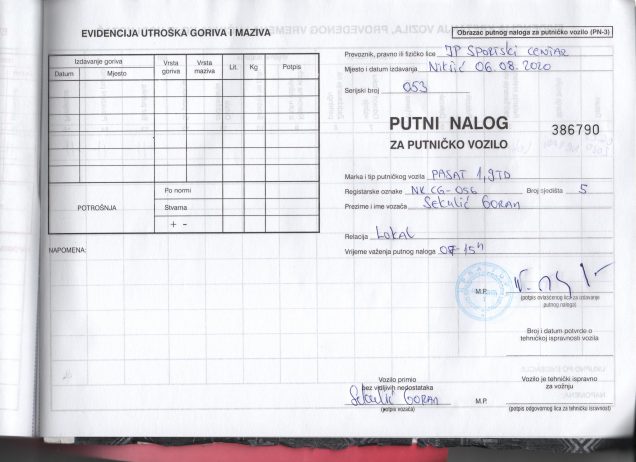 EVIDENCIJA UTROŠKA GORIVA I MAZIVA
Izdavanje goriva
Datum
Mjesto
Vrsta goriva
Vrsta maziva
Lit.
Kg
Potpis
POTROŠNJA
Po normi
Stvarna
+ -
NAPOMENA:
Obrazac putnog naloga za putničko vozilo (PN-3)
Prevoznik, pravno ili fizičko lice JP SPORTSKI CENTAR
Mjesto i datum izdavanja Nikšić 06.08.2020
Serijski broj 053
PUTNI NALOG
386790
ZA PUTNIČKO VOZILO
Marka i tip putničkog vozila PASAT 1,9TD
Registarske oznake NK CG-056 Broj sjedišta 5
Prezime i ime vozača Sekulić GORAN
Relacija LOKAL
Vrijeme važenja putnog naloga 07-15h
M.P.
(potpis ovlašćenog lica za izdavanje
putnog naloga)
Broj i datum potvrde o
tehničkoj ispravnosti vozila
Vozilo primio
bez vidljivih nedostataka
Sekulić GORAN
(potpis vozača)
Vozilo je tehnički ispravno
za vožnju
M.P.
(potpis odgovornog lica za tehničku ispravnost)